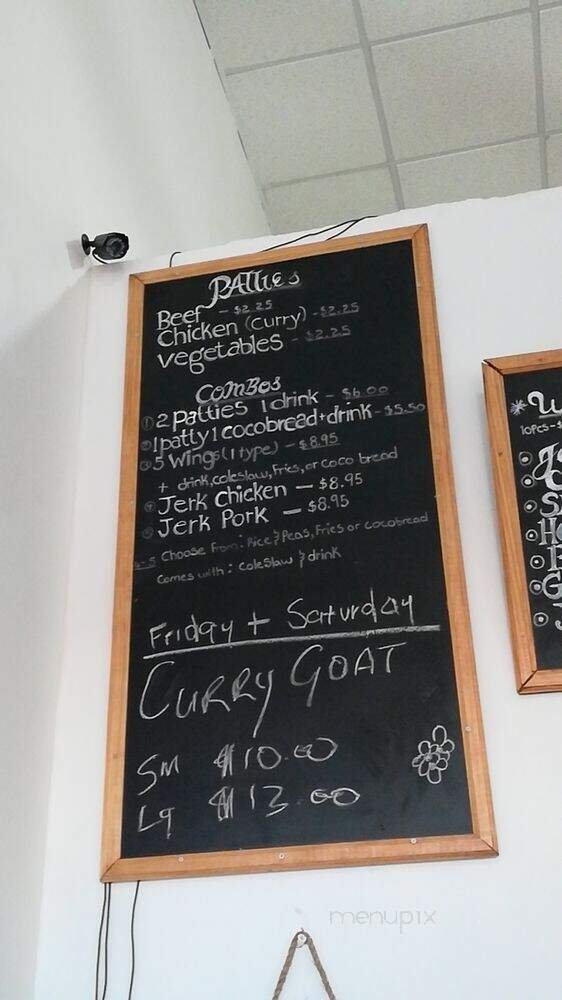 Patties
Beef - $2.25
Chicken (curry) - $2.25
vegetables - $2.25
COMBOS
① 2 Patties 1 drink - $6.00
② 1 patty 1 cocobread + drink - $5.50
③ 5 wings (1 type) - $8.95
+ drink, coleslaw, fries, or coco bread
④ Jerk Chicken - $8.95
⑤ Jerk Pork - $8.95
4-5 Choose from: Rice & Peas, Fries or Cocobread
comes with: coleslaw & drink
Friday + Satturday
CURRY GOAT
SM $10.00
Lg $13.00
10pcs-$
menupix